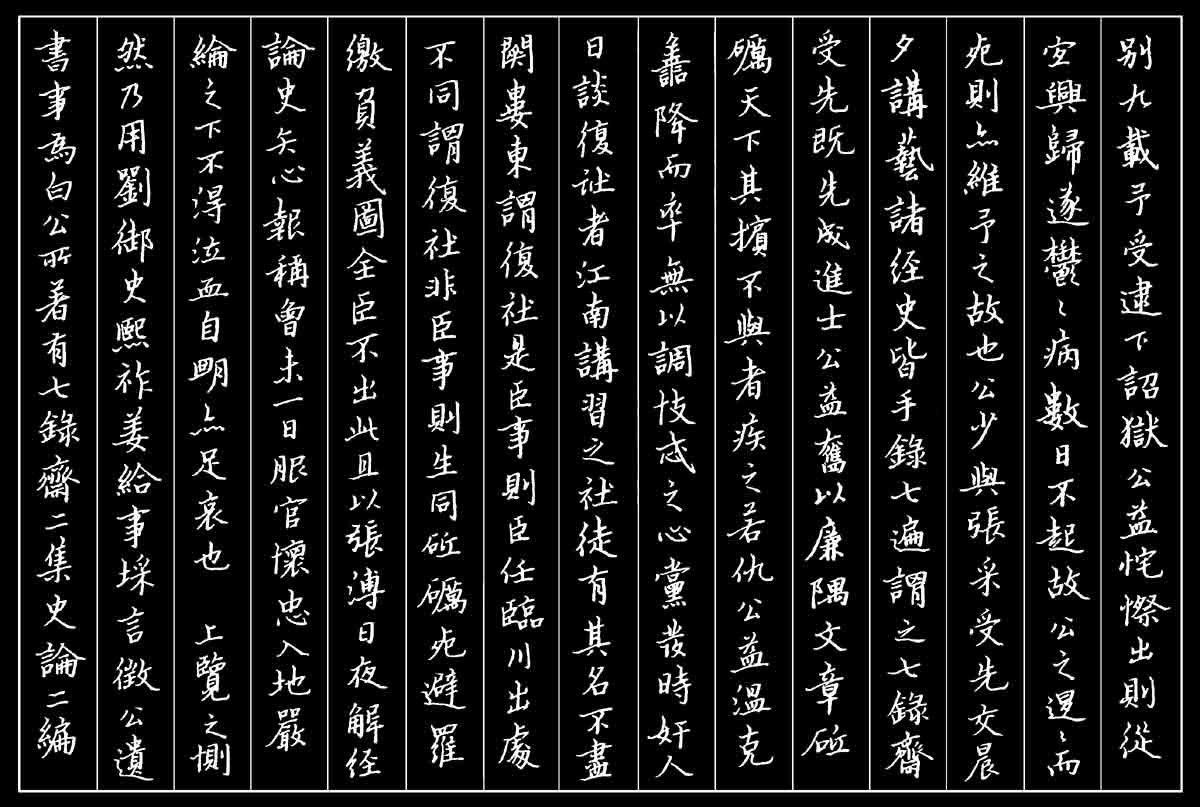 別九載予受逮下詔獄公益恠憏出則從
空興歸遂鬱〻病數日不起故公之遅〻而
死則亦維予之故也公少與張采受先交晨
夕講藝諸経史皆手錄七遍謂之七錄齋
受先既先成進士公益奮以廉隅文章砥
礪天下其擯不與者疾之若仇公益溫克
譱降而卒無以調忮忒之心黨發時奸人
日談復社者江南講習之社徒有其名不盡
関婁東謂復社是臣事則臣任臨川出處
不同謂復社非臣事則生同砥礪死避羅
繳負義圖全臣不出此且以張溥日夜解経
論史矢心報稱曾未一日服官懷忠入地嚴
綸之下不得泣血自明亦足哀也 上覽之惻
然乃用劉御史熙祚姜給事埰言徴公遺
書事為白公所著有七錄齋二集史論二編